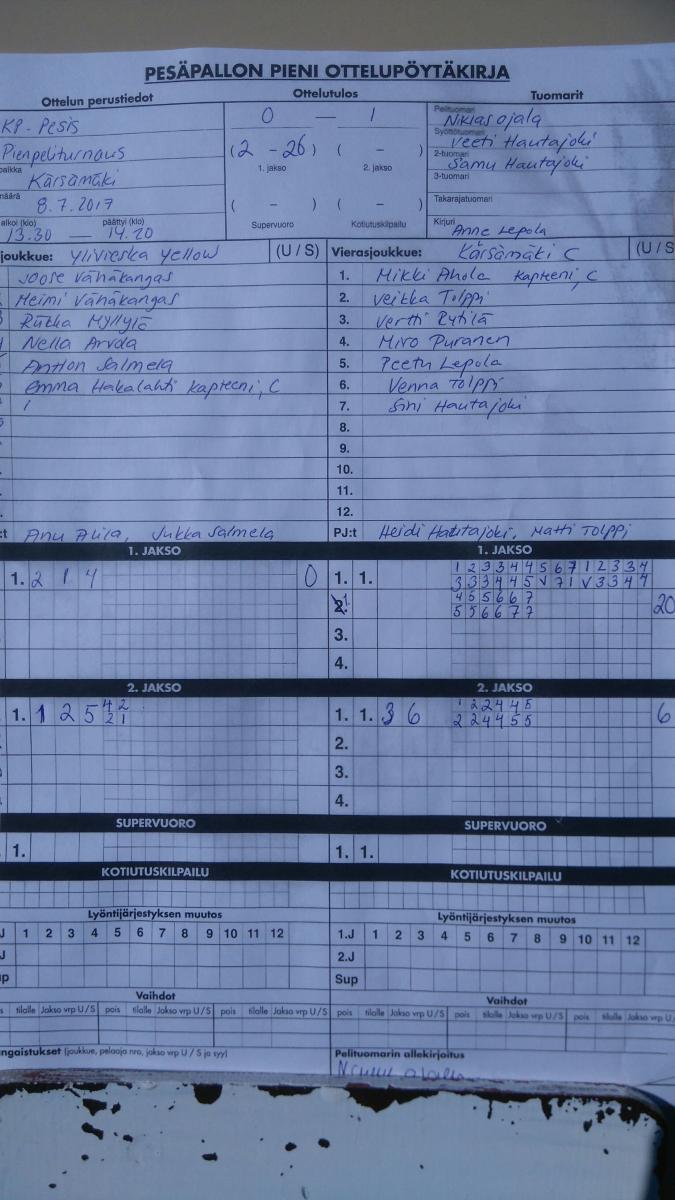 PESÄPALLON PIENI OTTELUPÖYTÄKIRJA
Ottelun perustiedot
KP-Pesis
Pienpeliturnaus
paikka Kärsämäki
määrä 8.7.2017
alkoi (klo) päättyi (klo)
13.30 — 14.20
Ottelutulos
0 — 1
(2 - 26) ( - )
1. jakso 2. jakso
( - ) ( - )
Supervuoro Kotiutuskilpailu
Tuomarit
Pelituomari Niklas Ojala
Syöttötuomari Veeti Hautajoki
2-tuomari Samu Hautajoki
3-tuomari
Takarajatuomari
Kirjuri Anne Lepola
joukkue: Ylivieska Yellow (U / S)
Joose Vähäkangas
Heimi Vähäkangas
Riikka Myllylä
Nella Arvola
Antton Salmela
Emma Hakalahti kapteeni, C
:t Anu Alila, Jukka Salmela
Vierasjoukkue: Kärsämäki C (U / S
1. Mikki Ahola kapteeni, C
2. Veikka Tolppi
3. Vertti Rytilä
4. Miro Puranen
5. Peetu Lepola
6. Venna Tolppi
7. Sini Hautajoki
8.
9.
10.
11.
12.
PJ:t Heidi Hautajoki, Matti Tolppi
1. JAKSO
1. 2 1 4 0
1. JAKSO
1. 1. 1 2 3 3 4 4 5 6 7 1 2 3 3 4
3 3 3 4 4 5 V 7 1 V 3 3 4 4
4 5 5 6 6 7
5 5 6 6 7 7 20
3.
4.
2. JAKSO
1. 1 2 5 4 2
2 1
2. JAKSO
1. 1. 3 6 1 2 2 4 4 5
2 2 4 4 5 5 6
2.
3.
4.
SUPERVUORO
1.
SUPERVUORO
1. 1.
KOTIUTUSKILPAILU
KOTIUTUSKILPAILU
Lyöntijärjestyksen muutos
J 1 2 3 4 5 6 7 8 9 10 11 12
J
up
Lyöntijärjestyksen muutos
1.J 1 2 3 4 5 6 7 8 9 10 11 12
2.J
Sup
Vaihdot
is tilalle Jakso vrp U / S pois tilalle Jakso vrp U / S pois tilalle Jakso vrp U / S
Vaihdot
pois tilalle Jakso vrp U / S pois tilalle Jakso vrp U / S pois tilalle Jakso vrp U
ngaistukset (joukkue, pelaaja nro, jakso vrp U / S ja syy)
Pelituomarin allekirjoitus